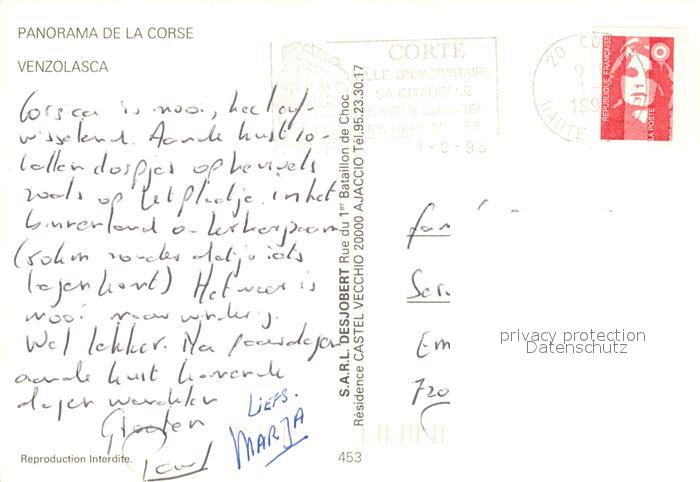 PANORAMA DE LA CORSE
VENZOLASCA
Corsica is mooi, heel af-
wisselend. Aan de kust
dorpjes op heuvels
zoals op het plaatje. In het
binnenland
(50km zonder dat je iets
tegenkomt) Het weer is
mooi maar winderig.
Wel lekker. Na paar dagen
aan de kust komende
dagen wandelen
Groeten
Paul
LIEFS.
MARJA
Reproduction Interdite.
453
S.A.R.L. DESJOBERT Rue du 1er Bataillon de Choc
Résidence CASTEL VECCHIO 20000 AJACCIO Tél.95.23.30.17
CORTE
VILLE UNIVERSITAIRE
SA CITADELLE
VIEUX QUARTIER
1-9-95
20 CO
HAUTE
REPUBLIQUE FRANÇAISE
LA POSTE
fam
Ser
Em
privacy protection
Datenschutz